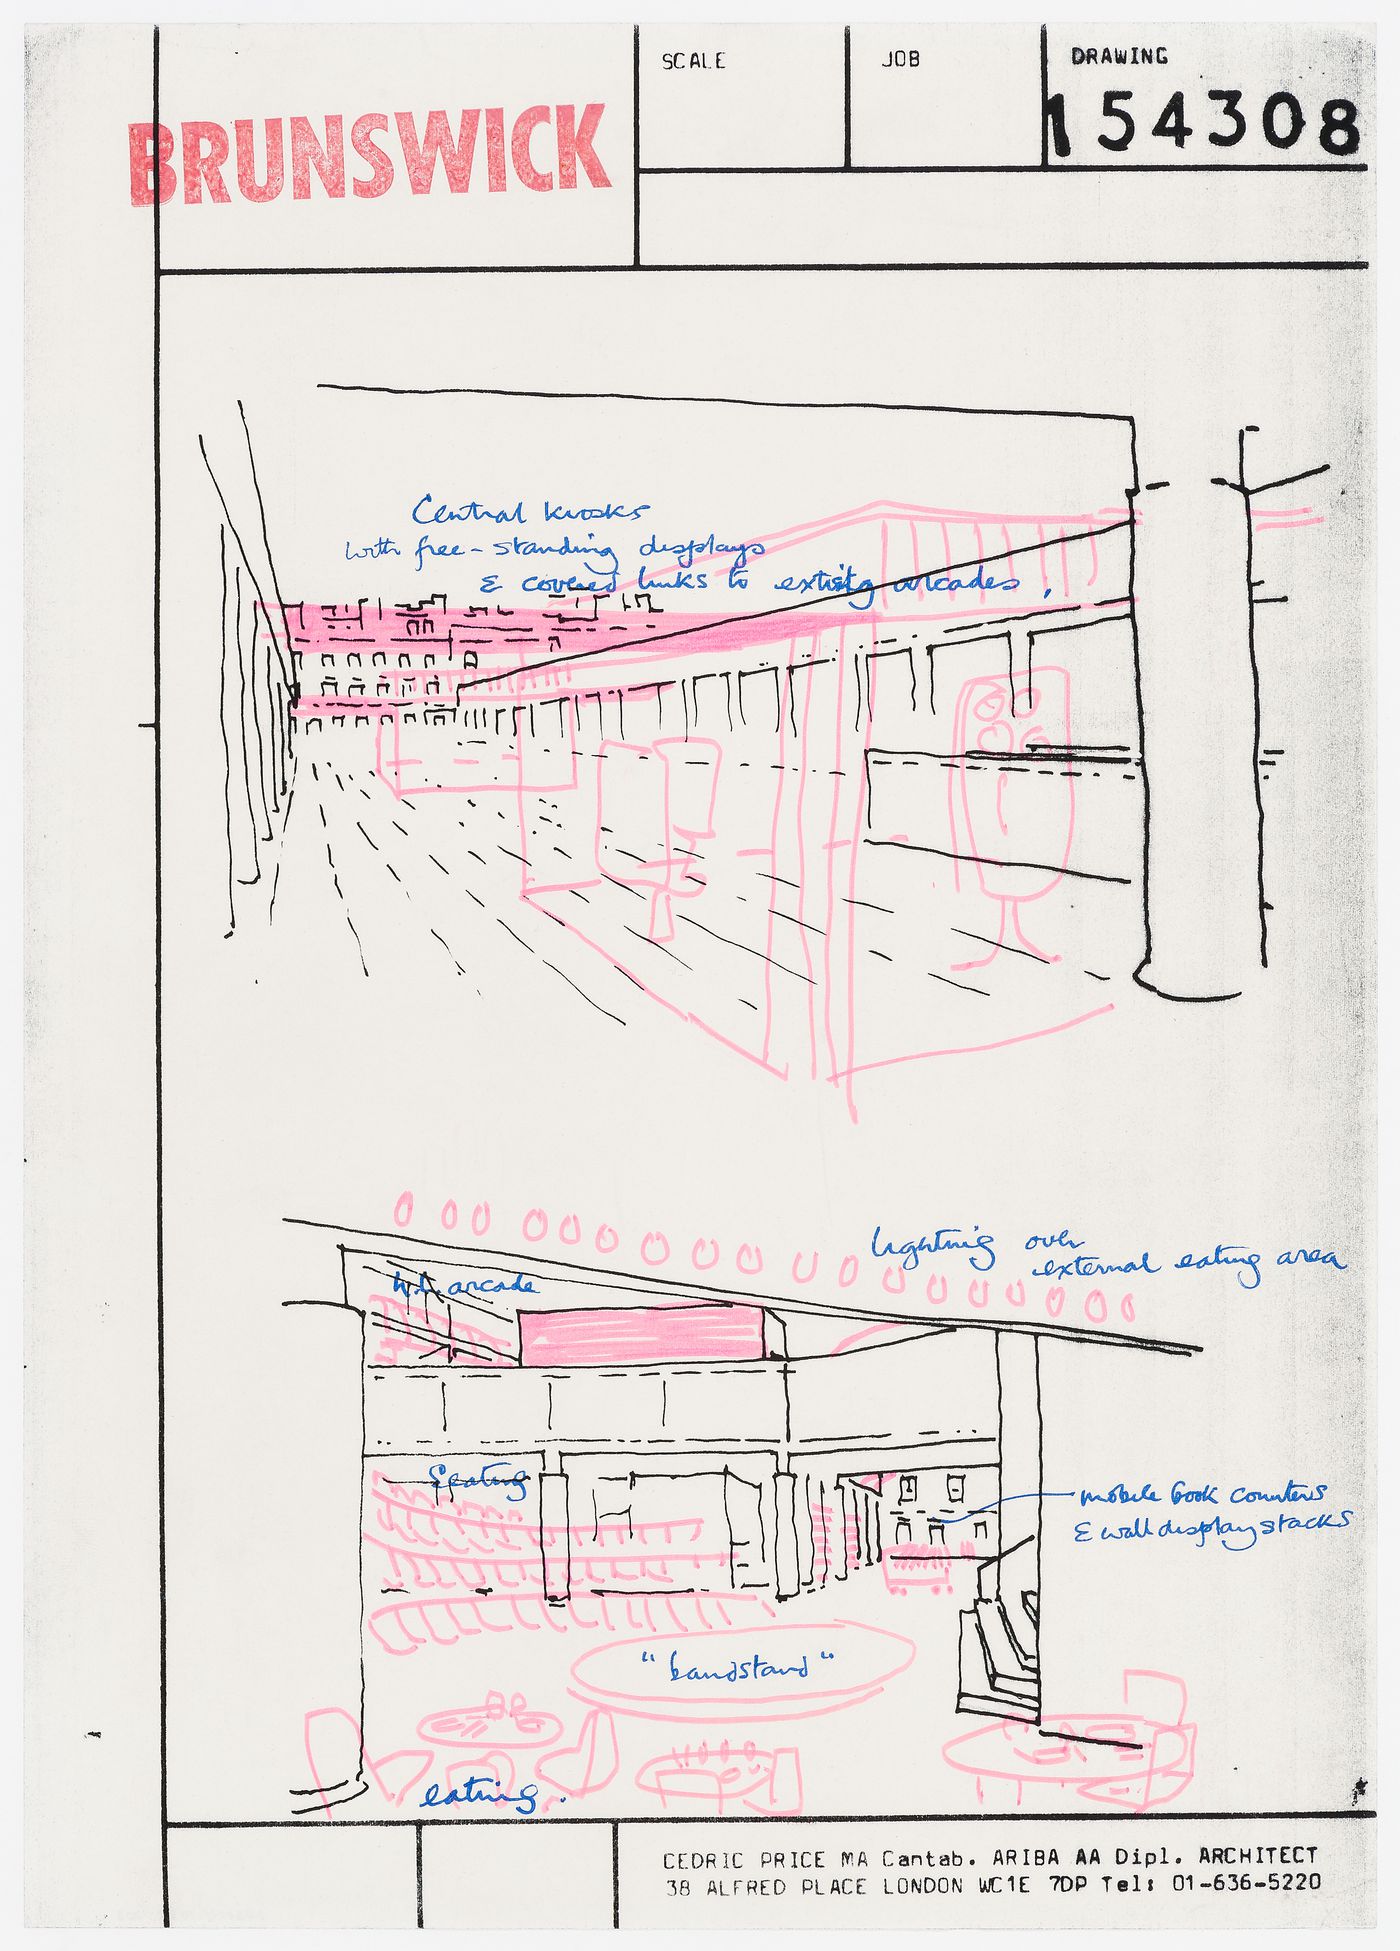 BRUNSWICK
SCALE
JOB
DRAWING
154308
Central kiosks
with free-standing displays
& covered links to existg arcades,
lightning over
external eating area
h.l. arcade
Seating
mobile book counters
& wall display stacks
"bandstand"
eating.
CEDRIC PRICE MA Cantab. ARIBA AA Dipl. ARCHITECT
38 ALFRED PLACE LONDON WC1E 7DP Tel: 01-636-5220